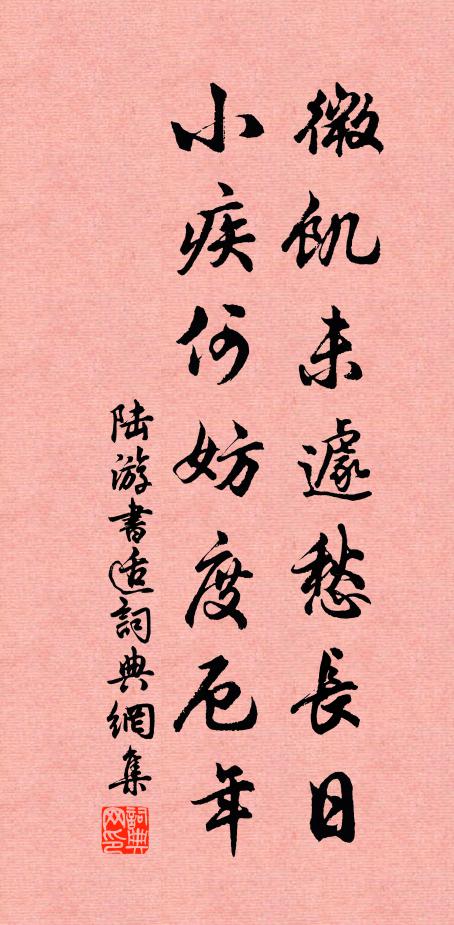 微飢未遽愁長日
小疾何妨度厄年
陆游書适詞典網集
詞典网印